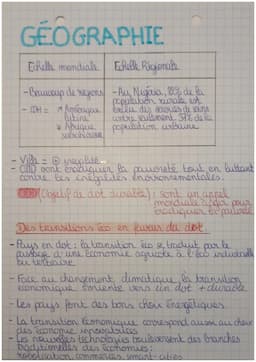 GÉOGRAPHIE
Echelle mondiale
Echelle Régionale
- Beaucoup de régions
- IDH = → Amérique
latine
→ Afrique
subsaharienne
- Au Nigéria, 80% de la
population rurale est
exclue des services de soins
contre seulement 37% de la
population urbaine
- Ville = ⊕ inégalité
- ODD sont éradiquer la pauvreté tout en luttant
contre les inégalités environnementales.
ODD (Objectif de dvt durable) : sont un appel
mondial à agir pour
éradiquer la pauvreté
Des transitions éco en faveur du dvt
- Pays en dvt : la transition éco se traduit par le
passage d'une économie agricole à l'éco industrielle
ou tertiaire
- Face au changement climatique, la transition
économique s'oriente vers un dvt + durable
- Les pays font des bons choix énergétiques
- La transition économique correspond aussi au choix
des économies innovatrices
- Les nouvelles technologies bouleversent des branches
traditionnelles des économies :
robotisation, commerces, smart-cities